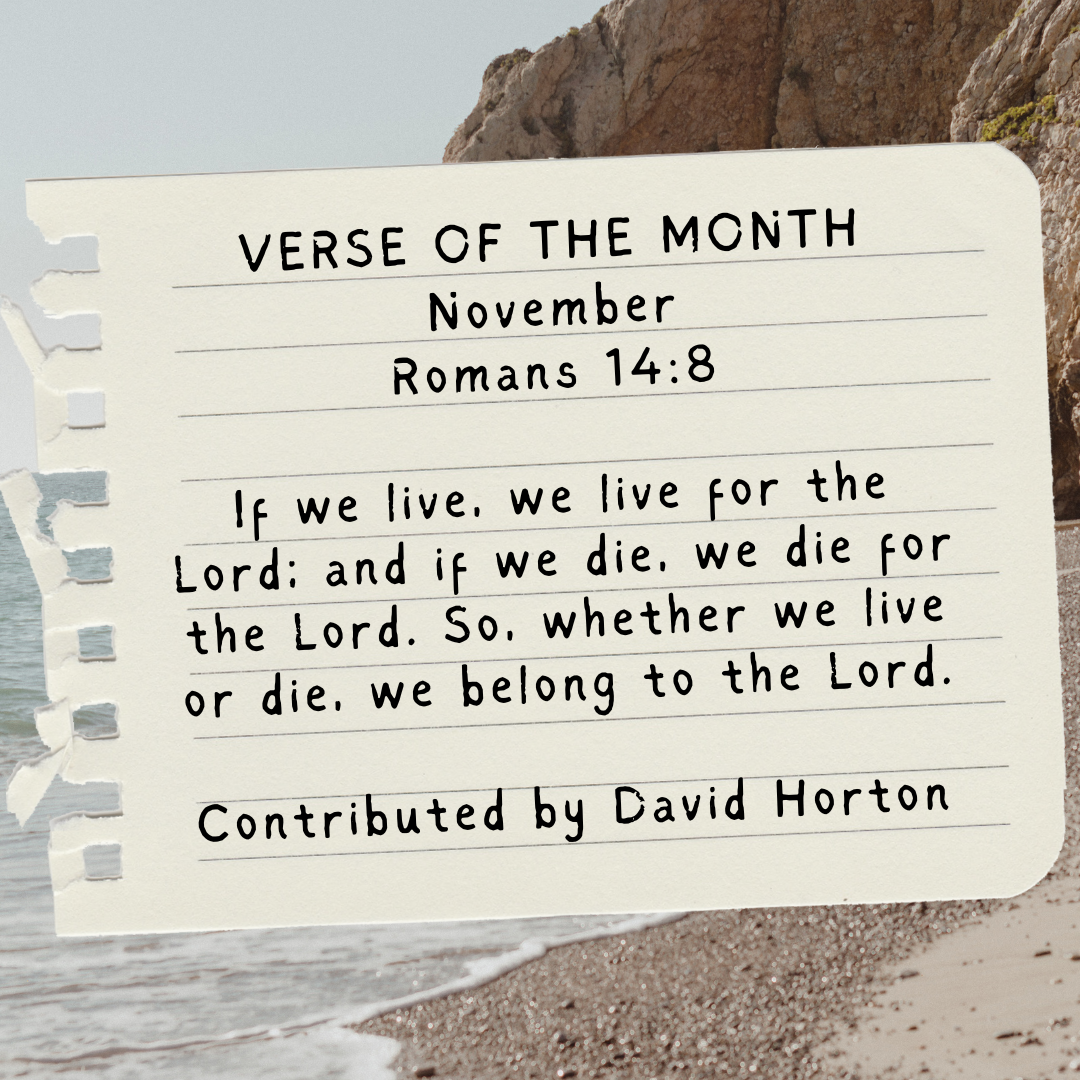 VERSE OF THE MONTH
November
Romans 14:8
If we live, we live for the
Lord; and if we die, we die for
the Lord. So, whether we live
or die, we belong to the Lord.
Contributed by David Horton